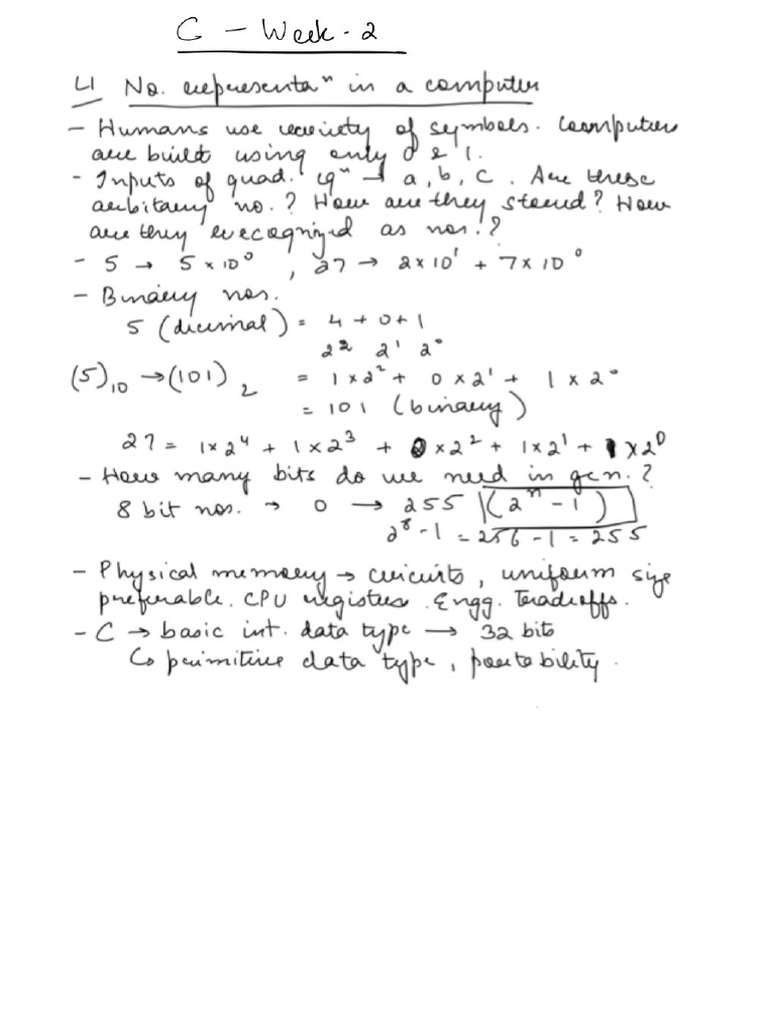 C - Week - 2
L1 No. representaⁿ in a computer
- Humans use variety of symbols. Computers
are built using only 0 & 1.
- Inputs of quad. eqⁿ → a, b, c. Are these
arbitary no.? How are they stored? How
are they recognized as nos.?
- 5 → 5 × 10⁰, 27 → 2 × 10¹ + 7 × 10⁰
- Binary nos.
5 (decimal) = 4 + 0 + 1
2² 2¹ 2⁰
(5)₁₀ → (101)₂ = 1 × 2² + 0 × 2¹ + 1 × 2⁰
= 101 (binary)
27 = 1 × 2⁴ + 1 × 2³ + 0 × 2² + 1 × 2¹ + 1 × 2⁰
- How many bits do we need in gen.?
8 bit nos. → 0 → 255 (2ⁿ - 1)
2⁸ - 1 = 256 - 1 = 255
- Physical memory → circuits, uniform size
preferable. CPU registers. Engg. Tradeoffs.
- C → basic int. data type → 32 bits
↳ primitive data type, portability.